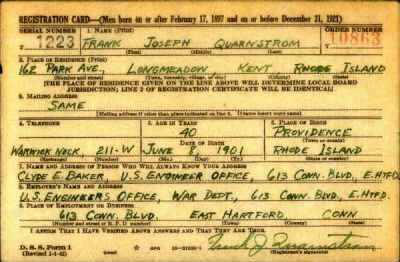 REGISTRATION CARD—(Men born on or after February 17, 1897 and on or before December 31, 1921)
SERIAL NUMBER 1. NAME (Print) ORDER NUMBER
1223 FRANK JOSEPH QUARNSTROM 10863
(First) (Middle) (Last)
2. PLACE OF RESIDENCE (Print)
162 PARK AVE., LONGMEADOW KENT RHODE ISLAND
(Number and street) (Town, township, village, or city) (County) (State)
[THE PLACE OF RESIDENCE GIVEN ON THE LINE ABOVE WILL DETERMINE LOCAL BOARD
JURISDICTION; LINE 2 OF REGISTRATION CERTIFICATE WILL BE IDENTICAL]
3. MAILING ADDRESS
SAME
[Mailing address if other than place indicated on line 2. If same insert word same]
4. TELEPHONE 5. AGE IN YEARS 6. PLACE OF BIRTH
40 PROVIDENCE
DATE OF BIRTH (Town or county)
WARWICK NECK, 211-W JUNE 8, 1901 RHODE ISLAND
(Exchange) (Number) (Mo.) (Day) (Yr.) (State or country)
7. NAME AND ADDRESS OF PERSON WHO WILL ALWAYS KNOW YOUR ADDRESS
CLYDE E. BAKER, U.S. ENGINEER OFFICE, 613 CONN. BLVD., E. HTFD.
8. EMPLOYER'S NAME AND ADDRESS
U.S. ENGINEERS OFFICE, WAR DEPT., 613 CONN. BLVD., E. HTFD.
9. PLACE OF EMPLOYMENT OR BUSINESS
613 CONN. BLVD. EAST HARTFORD, CONN
(Number and street or R. F. D. number) (Town) (County) (State)
I AFFIRM THAT I HAVE VERIFIED ABOVE ANSWERS AND THAT THEY ARE TRUE.
D. S. S. Form 1
(Revised 1-1-42) Frank J. Quarnstrom
(Registrant's signature)